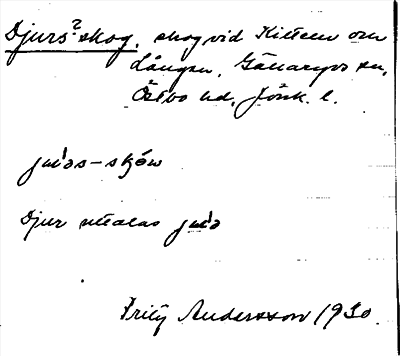 Djurs?skog, skog vid Kitteln om
Långan, Gällaryds sn,
Östbo hd, Jönk. l.
Djur uttalas
Frity Andersson 1930.